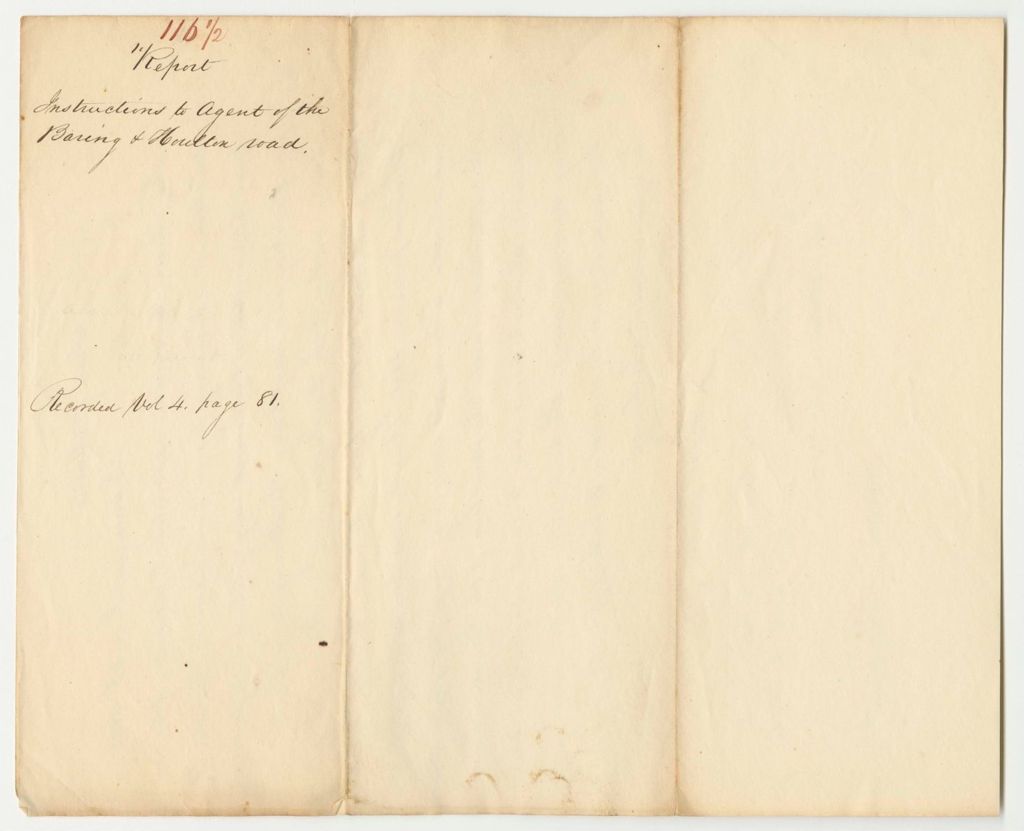 116 1/2
Report
Instructions to Agent of the
Baring & Houlton road.
Recorded Vol 4. page 81.